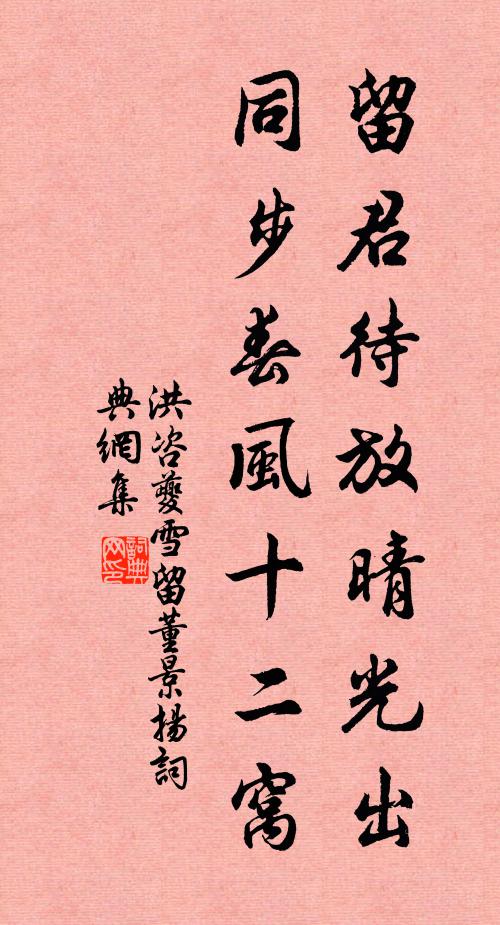 留君待放晴光出
同步春風十二窩
洪咨夔雪留董景揚詞
典網集
詞典網印